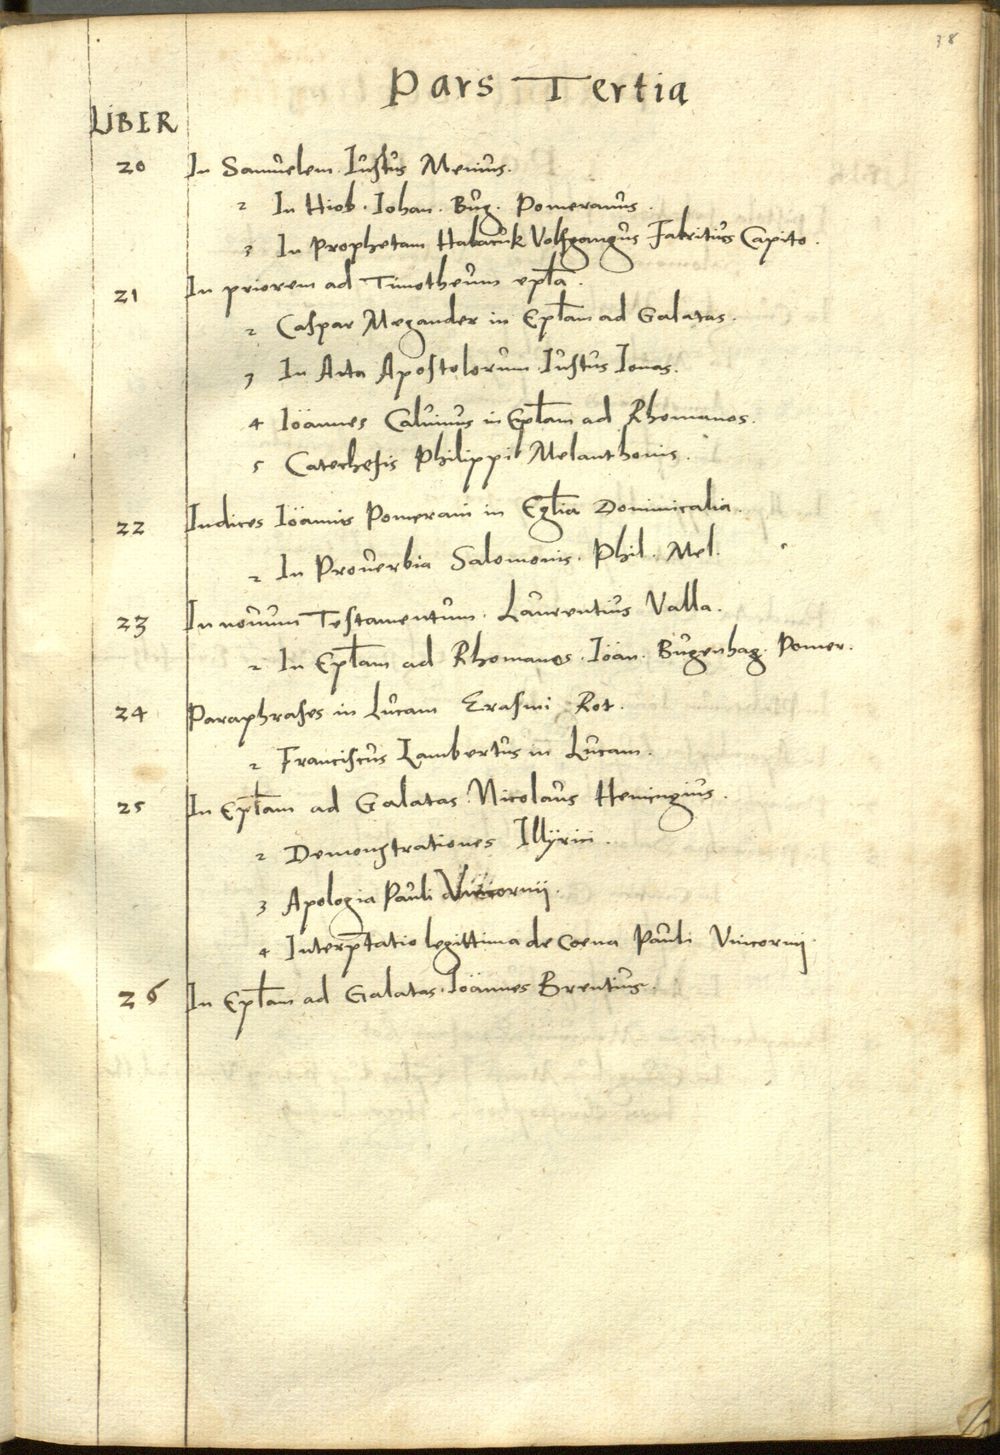 38
Pars Tertia
LIBER
20 In Samuelem Iustus Menius.
2 In Hiob. Iohan. Bug. Pomeranus.
3 In Prophetam Habacuk Volfgangus Fabritius Capito.
21 In priorem ad Timotheum epła.
2 Caspar Megander in Epłam ad Galatas.
3 In Acta Apostolorum Iustus Ionas.
4 Ioannes Caluinus in Epłam ad Rhomanos.
5 Catechesis Philippi Melanthonis.
22 Indices Ioannis Pomerani in Eglia Dominicalia.
2 In Prouerbia Salomonis. Phil. Mel.
23 In nouum Testamentum. Laurentius Valla.
2 In Epłam ad Rhomanos. Ioan. Bugenhag. Pomer.
24 Paraphrases in Lucam Erasmi Rot.
2 Franciscus Lambertus in Lucam.
25 In Epłam ad Galatas. Nicolaus Hemingius.
2 Demonstrationes Illÿrici.
3 Apologia Pauli Vnicornij.
4 Interp̄tatio legittima de Coena Pauli Vnicornij.
26 In Epłam ad Galatas. Ioannes Brentius.